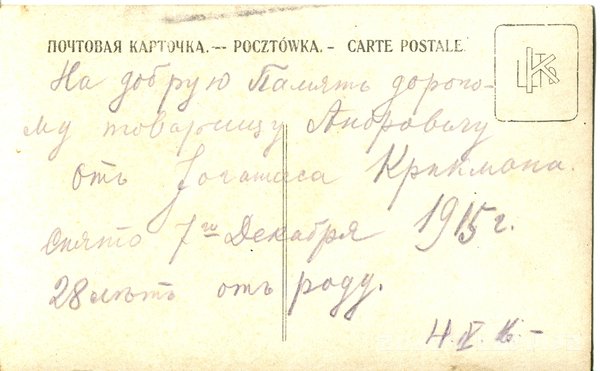 ПОЧТОВАЯ КАРТОЧКА.— POCZTÓWKA. - CARTE POSTALE.
На добрую Память дорого-
му товарищу Андровичу
отъ Крикмана.
Снято 7го Декабря 1915 г.
28 лѣтъ отъ роду.